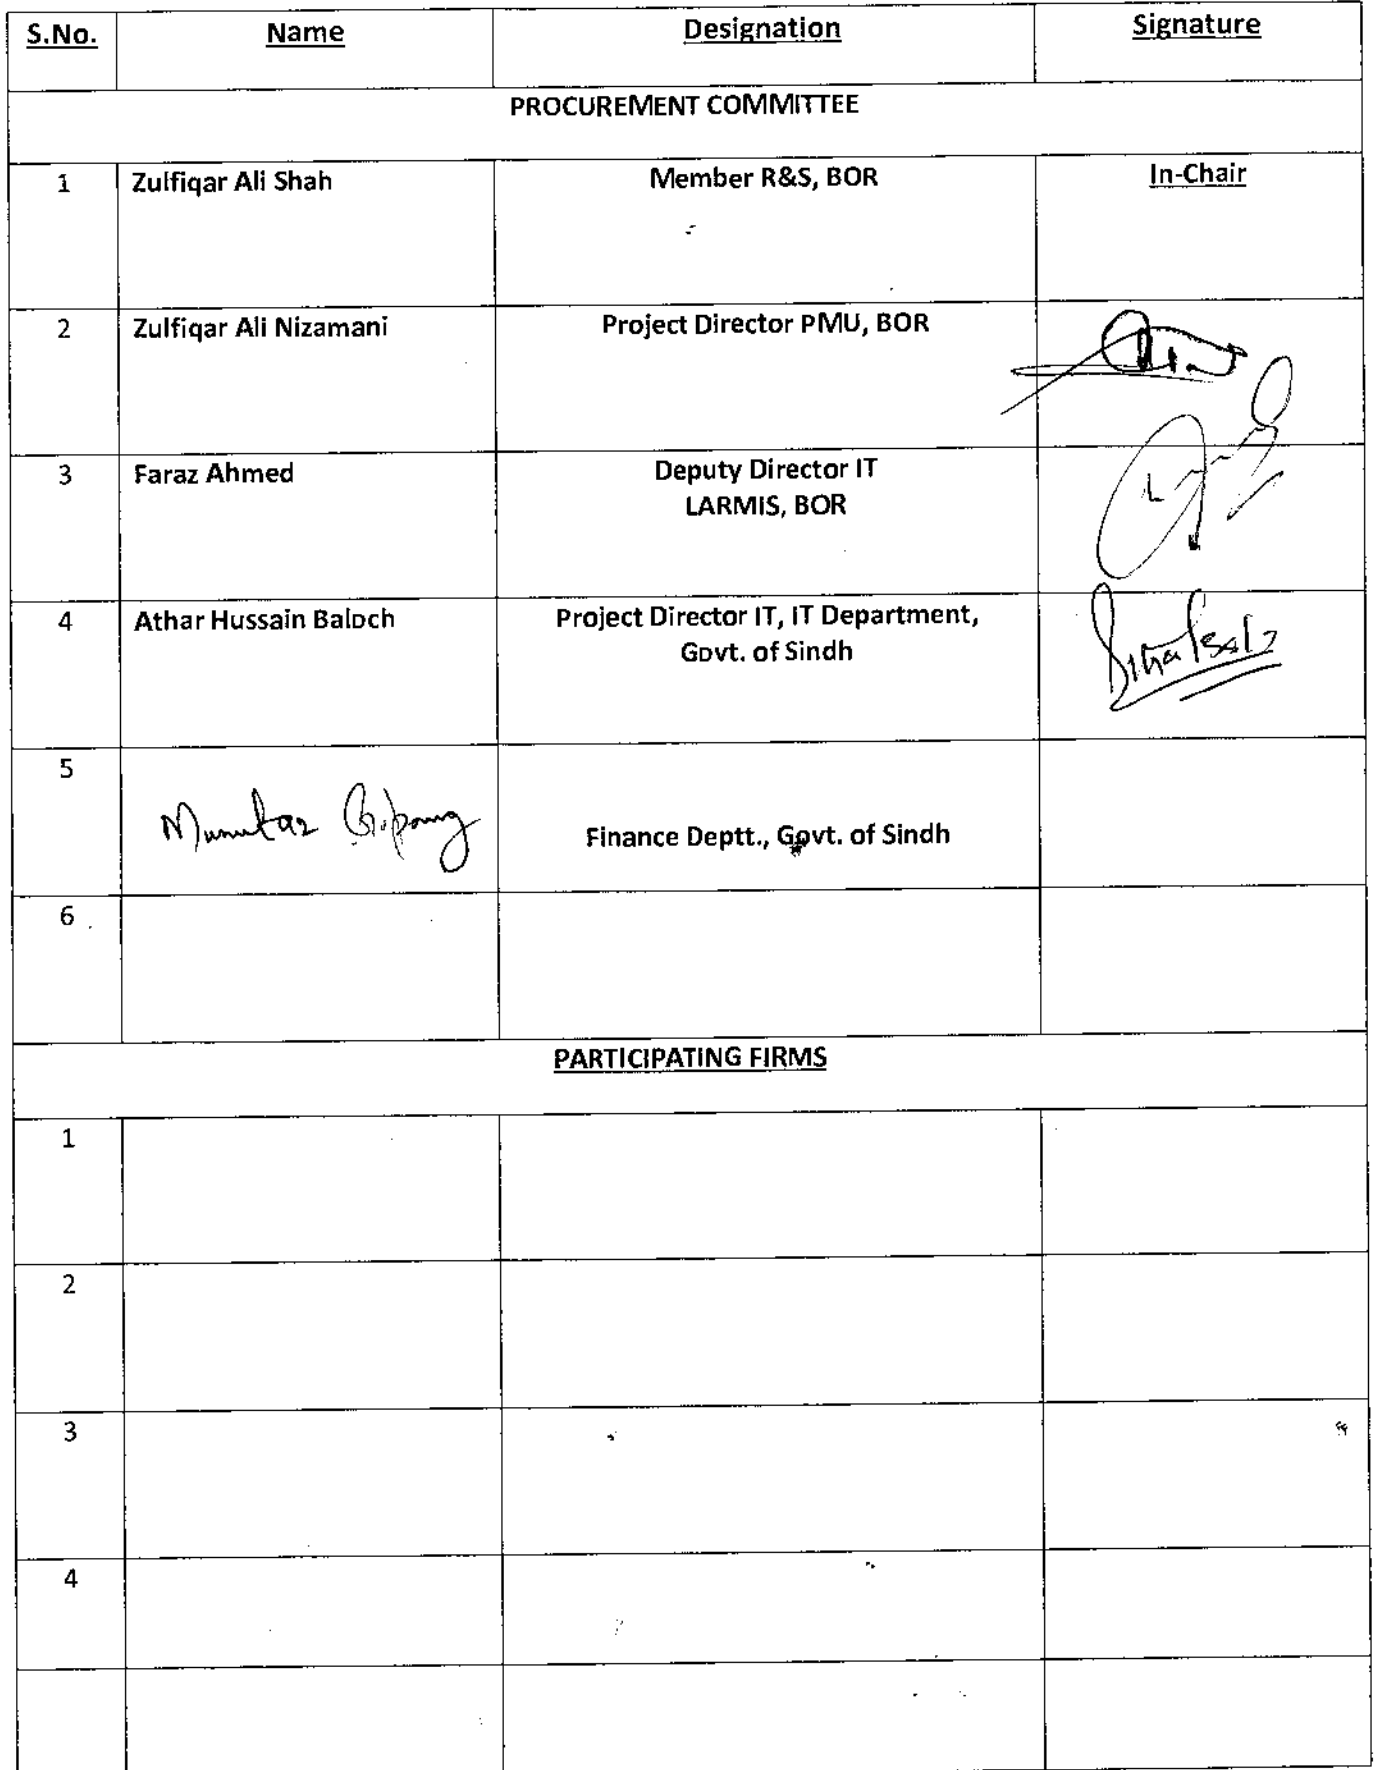 S.No. Name Designation Signature
PROCUREMENT COMMITTEE
1 Zulfiqar Ali Shah Member R&S, BOR In-Chair
2 Zulfiqar Ali Nizamani Project Director PMU, BOR
3 Faraz Ahmed Deputy Director IT
LARMIS, BOR
4 Athar Hussain Baloch Project Director IT, IT Department,
Govt. of Sindh
5
Mumtaz Finance Deptt., Govt. of Sindh
6
PARTICIPATING FIRMS
1
2
3
4